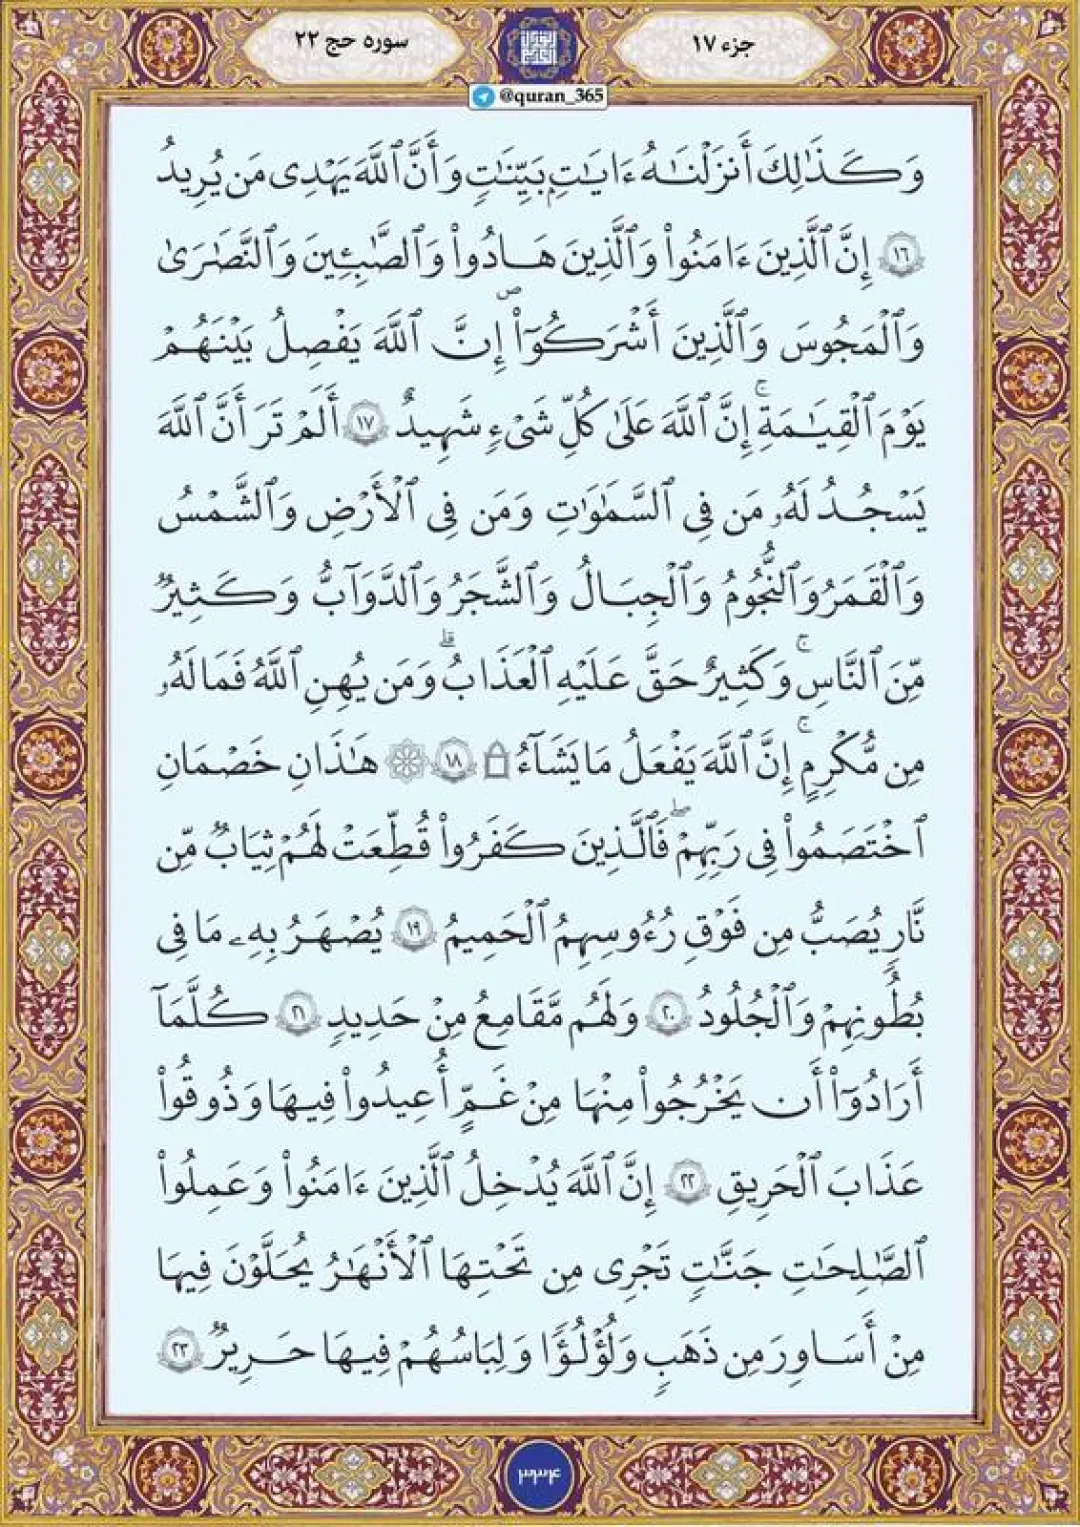 جزء ١٧
سوره حج ٢٢
@quran_365
وَكَذَٰلِكَ أَنزَلْنَٰهُ ءَايَٰتٍۭ بَيِّنَٰتٍ وَأَنَّ ٱللَّهَ يَهْدِى مَن يُرِيدُ
١٦ إِنَّ ٱلَّذِينَ ءَامَنُوا۟ وَٱلَّذِينَ هَادُوا۟ وَٱلصَّٰبِـِٔينَ وَٱلنَّصَٰرَىٰ
وَٱلْمَجُوسَ وَٱلَّذِينَ أَشْرَكُوٓا۟ إِنَّ ٱللَّهَ يَفْصِلُ بَيْنَهُمْ
يَوْمَ ٱلْقِيَٰمَةِ ۚ إِنَّ ٱللَّهَ عَلَىٰ كُلِّ شَىْءٍ شَهِيدٌ ١٧ أَلَمْ تَرَ أَنَّ ٱللَّهَ
يَسْجُدُ لَهُۥ مَن فِى ٱلسَّمَٰوَٰتِ وَمَن فِى ٱلْأَرْضِ وَٱلشَّمْسُ
وَٱلْقَمَرُ وَٱلنُّجُومُ وَٱلْجِبَالُ وَٱلشَّجَرُ وَٱلدَّوَآبُّ وَكَثِيرٌ
مِّنَ ٱلنَّاسِ ۚ وَكَثِيرٌ حَقَّ عَلَيْهِ ٱلْعَذَابُ ۗ وَمَن يُهِنِ ٱللَّهُ فَمَا لَهُۥ
مِن مُّكْرِمٍ ۚ إِنَّ ٱللَّهَ يَفْعَلُ مَا يَشَآءُ ۩ ١٨ ۞ هَٰذَانِ خَصْمَانِ
ٱخْتَصَمُوا۟ فِى رَبِّهِمْ ۖ فَٱلَّذِينَ كَفَرُوا۟ قُطِّعَتْ لَهُمْ ثِيَابٌ مِّن
نَّارٍ يُصَبُّ مِن فَوْقِ رُءُوسِهِمُ ٱلْحَمِيمُ ١٩ يُصْهَرُ بِهِۦ مَا فِى
بُطُونِهِمْ وَٱلْجُلُودُ ٢٠ وَلَهُم مَّقَٰمِعُ مِنْ حَدِيدٍ ٢١ كُلَّمَآ
أَرَادُوٓا۟ أَن يَخْرُجُوا۟ مِنْهَا مِنْ غَمٍّ أُعِيدُوا۟ فِيهَا وَذُوقُوا۟
عَذَابَ ٱلْحَرِيقِ ٢٢ إِنَّ ٱللَّهَ يُدْخِلُ ٱلَّذِينَ ءَامَنُوا۟ وَعَمِلُوا۟
ٱلصَّٰلِحَٰتِ جَنَّٰتٍ تَجْرِى مِن تَحْتِهَا ٱلْأَنْهَٰرُ يُحَلَّوْنَ فِيهَا
مِنْ أَسَاوِرَ مِن ذَهَبٍ وَلُؤْلُؤًا وَلِبَاسُهُمْ فِيهَا حَرِيرٌ ٢٣
٣٣٤